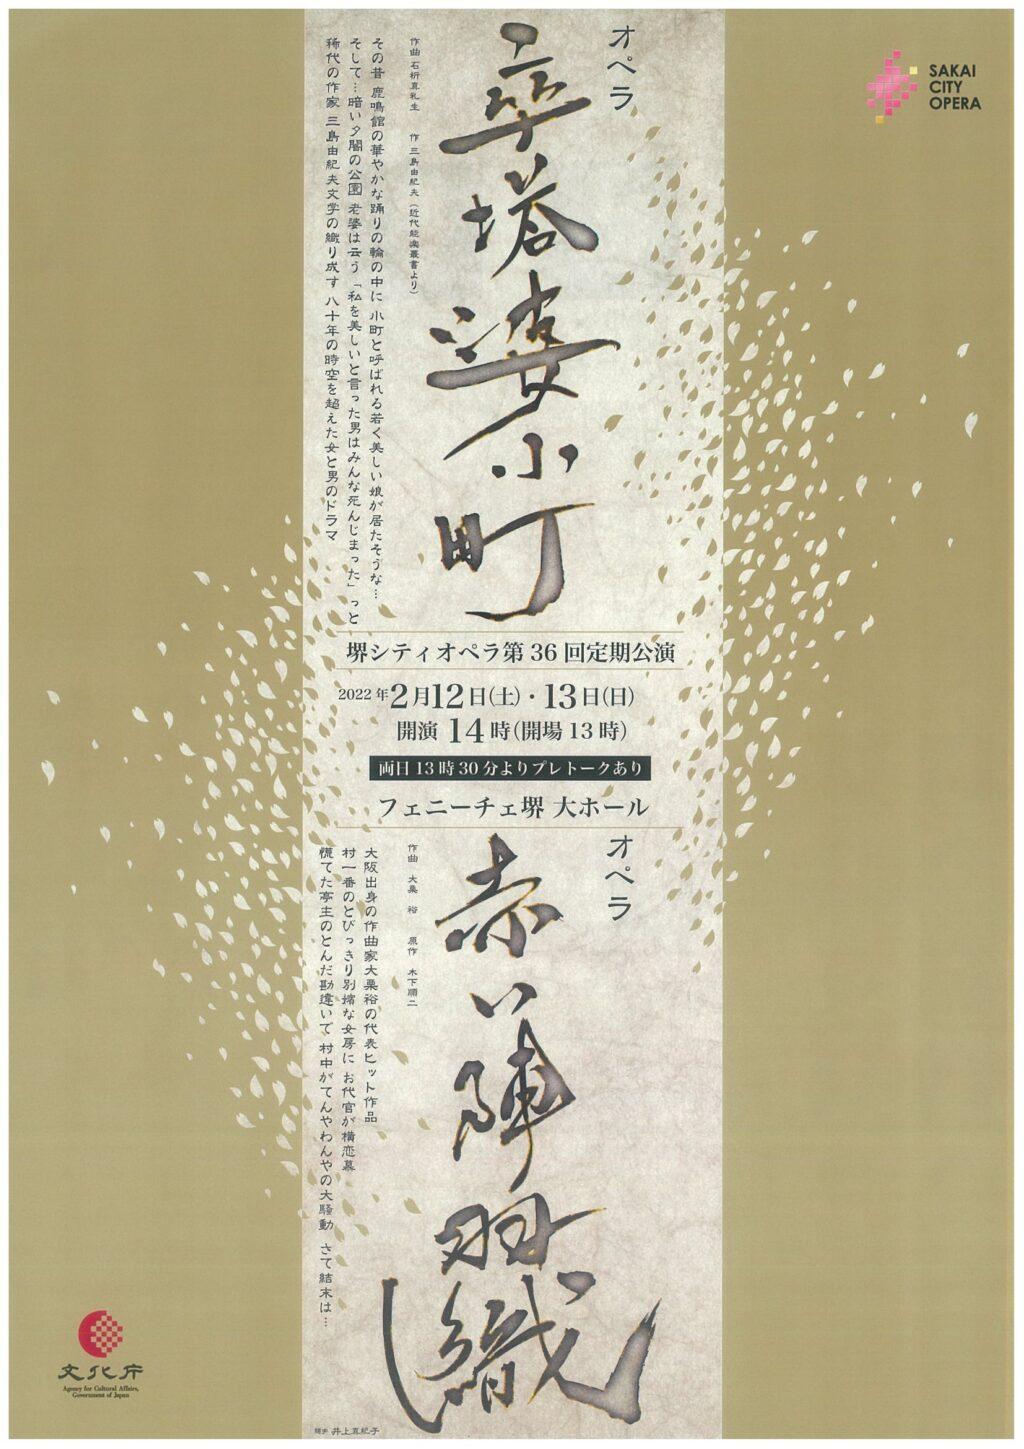 SAKAI
CITY
OPERA
オペラ
卒塔婆小町
作曲 石桁真礼生　作 三島由紀夫（近代能楽叢書より）
その昔 鹿鳴館の華やかな踊りの輪の中に 小町と呼ばれる若く美しい娘が居たそうな…
そして…暗い夕闇の公園 老婆は云う「私を美しいと言った男はみんな死んじまった」っと
稀代の作家 三島由紀夫文学の織り成す 八十年の時空を超えた女と男のドラマ
堺シティオペラ第36回定期公演
2022年2月12日(土)・13日(日)
開演 14時(開場13時)
両日13時30分よりプレトークあり
フェニーチェ堺 大ホール
オペラ
赤い陣羽織
作曲 大栗 裕　原作 木下順二
大阪出身の作曲家大栗裕の代表ヒット作品
村一番のとびっきり別嬪な女房に お代官が横恋慕
慌てた亭主のとんだ勘違いで 村中がてんやわんやの大騒動 さて結末は…
文化庁
Agency for Cultural Affairs,
Government of Japan
井上真紀子